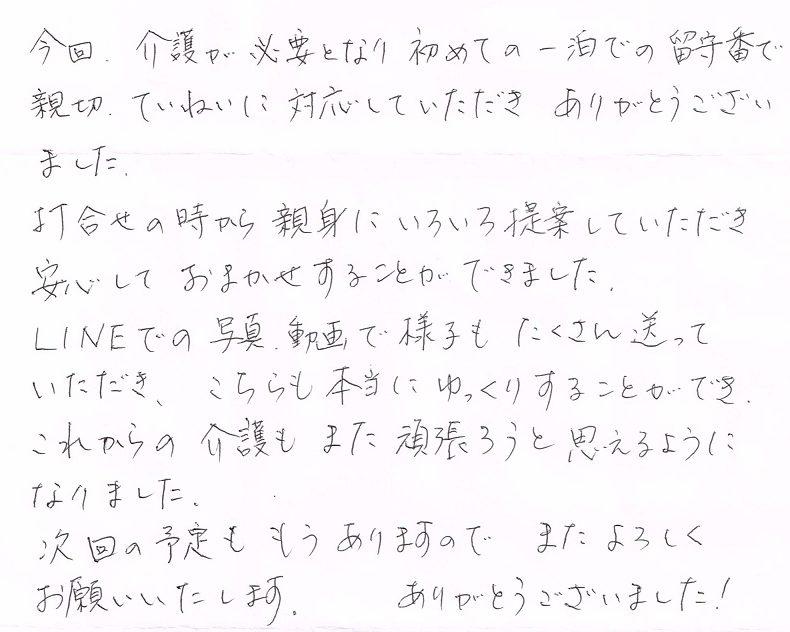 今回、介護が必要となり初めての一泊での留守番で
親切、ていねいに対応していただきありがとうござい
ました。
打合せの時から親身にいろいろ提案していただき
安心しておまかせすることができました。
LINEでの写真、動画で様子もたくさん送って
いただき、こちらも本当にゆっくりすることができ、
これからの介護もまた頑張ろうと思えるように
なりました。
次回の予定ももうありますのでまたよろしく
お願いいたします。 ありがとうございました!